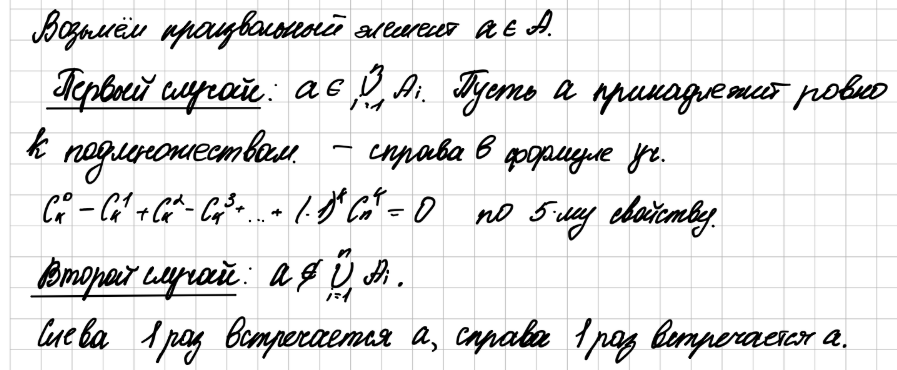 Возьмём произвольный элемент a ∈ A.
Первый случай: a ∈ ⋃ᵢ₌₁ⁿ Aᵢ. Пусть a принадлежит ровно
k подмножествам. – справа в формуле уч.
Cₖ⁰ − Cₖ¹ + Cₖ² − Cₖ³ + ... + (-1)ᵏ Cₙᵏ = 0 по 5-му свойству.
Второй случай: a ∉ ⋃ᵢ₌₁ⁿ Aᵢ.
Слева 1 раз встречается a, справа 1 раз встречается a.